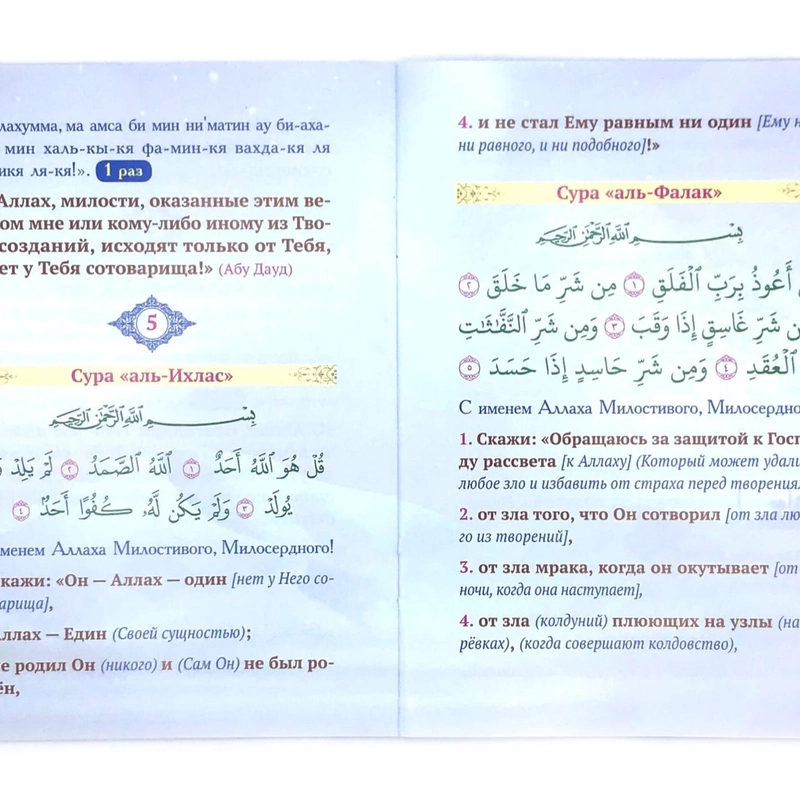 лахумма, ма амса би мин ни'матин ау би-аха-
мин халь-кы-кя фа-мин-кя вахда-кя ля
икя ля-кя!». 1 раз
Аллах, милости, оказанные этим ве-
ом мне или кому-либо иному из Тво-
созданий, исходят только от Тебя,
ет у Тебя сотоварища!» (Абу Дауд)
5
Сура «аль-Ихлас»
بِسْمِ اللَّهِ الرَّحْمَٰنِ الرَّحِيمِ
قُلْ هُوَ ٱللَّهُ أَحَدٌ ١ ٱللَّهُ ٱلصَّمَدُ ٢ لَمْ يَلِدْ وَ
يُولَدْ ٣ وَلَمْ يَكُن لَّهُۥ كُفُوًا أَحَدٌ ٤
именем Аллаха Милостивого, Милосердного!
кажи: «Он — Аллах — один [нет у Него со-
арища],
Аллах — Един (Своей сущностью);
е родил Он (никого) и (Сам Он) не был ро-
ён,
4. и не стал Ему равным ни один [Ему н
ни равного, и ни подобного]!»
Сура «аль-Фалак»
بِسْمِ اللَّهِ الرَّحْمَٰنِ الرَّحِيمِ
أَعُوذُ بِرَبِّ ٱلْفَلَقِ ١ مِن شَرِّ مَا خَلَقَ ٢
ن شَرِّ غَاسِقٍ إِذَا وَقَبَ ٣ وَمِن شَرِّ ٱلنَّفَّٰثَٰتِ
ٱلْعُقَدِ ٤ وَمِن شَرِّ حَاسِدٍ إِذَا حَسَدَ ٥
С именем Аллаха Милостивого, Милосердно
1. Скажи: «Обращаюсь за защитой к Госп
ду рассвета [к Аллаху] (Который может удали
любое зло и избавить от страха перед творения
2. от зла того, что Он сотворил [от зла лю
го из творений],
3. от зла мрака, когда он окутывает [от
ночи, когда она наступает],
4. от зла (колдуний) плюющих на узлы (на
рёвках), (когда совершают колдовство),